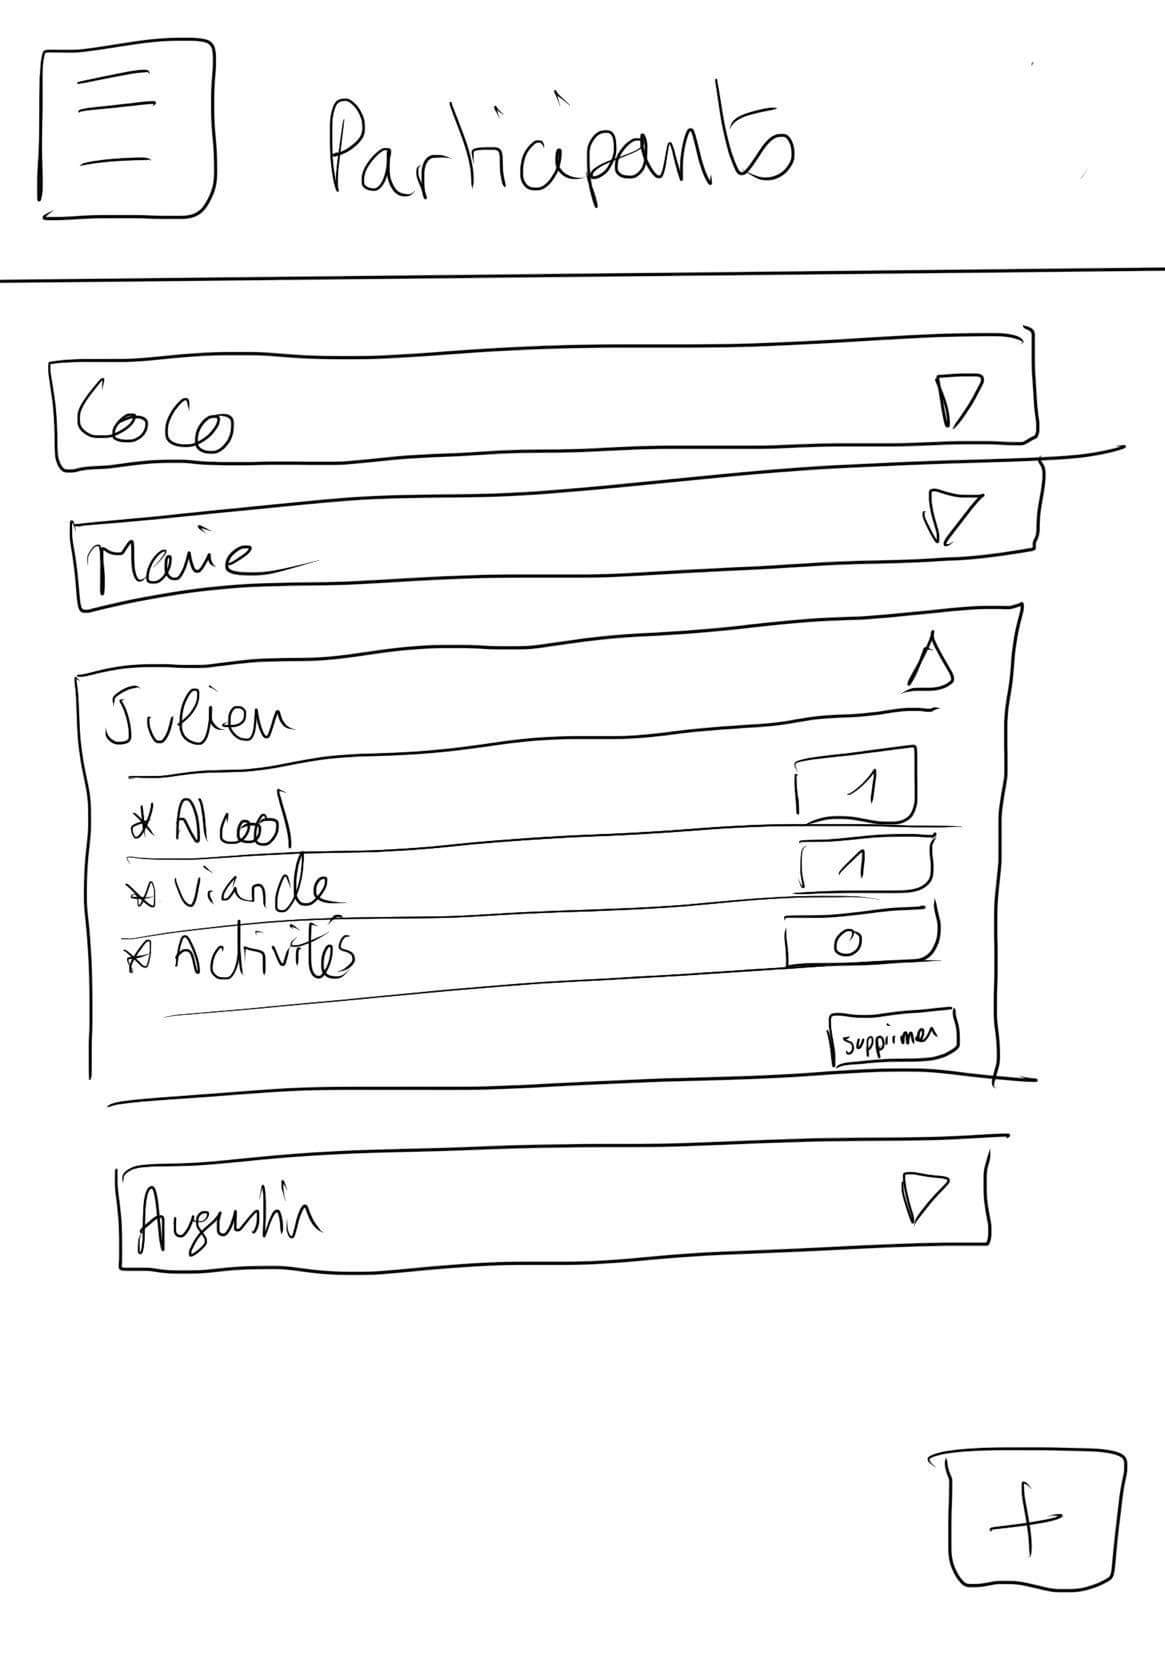 Participants
Coco
Marie
Julien
* Alcool 1
* Viande 1
* Activités 0
supprimer
Augustin
+